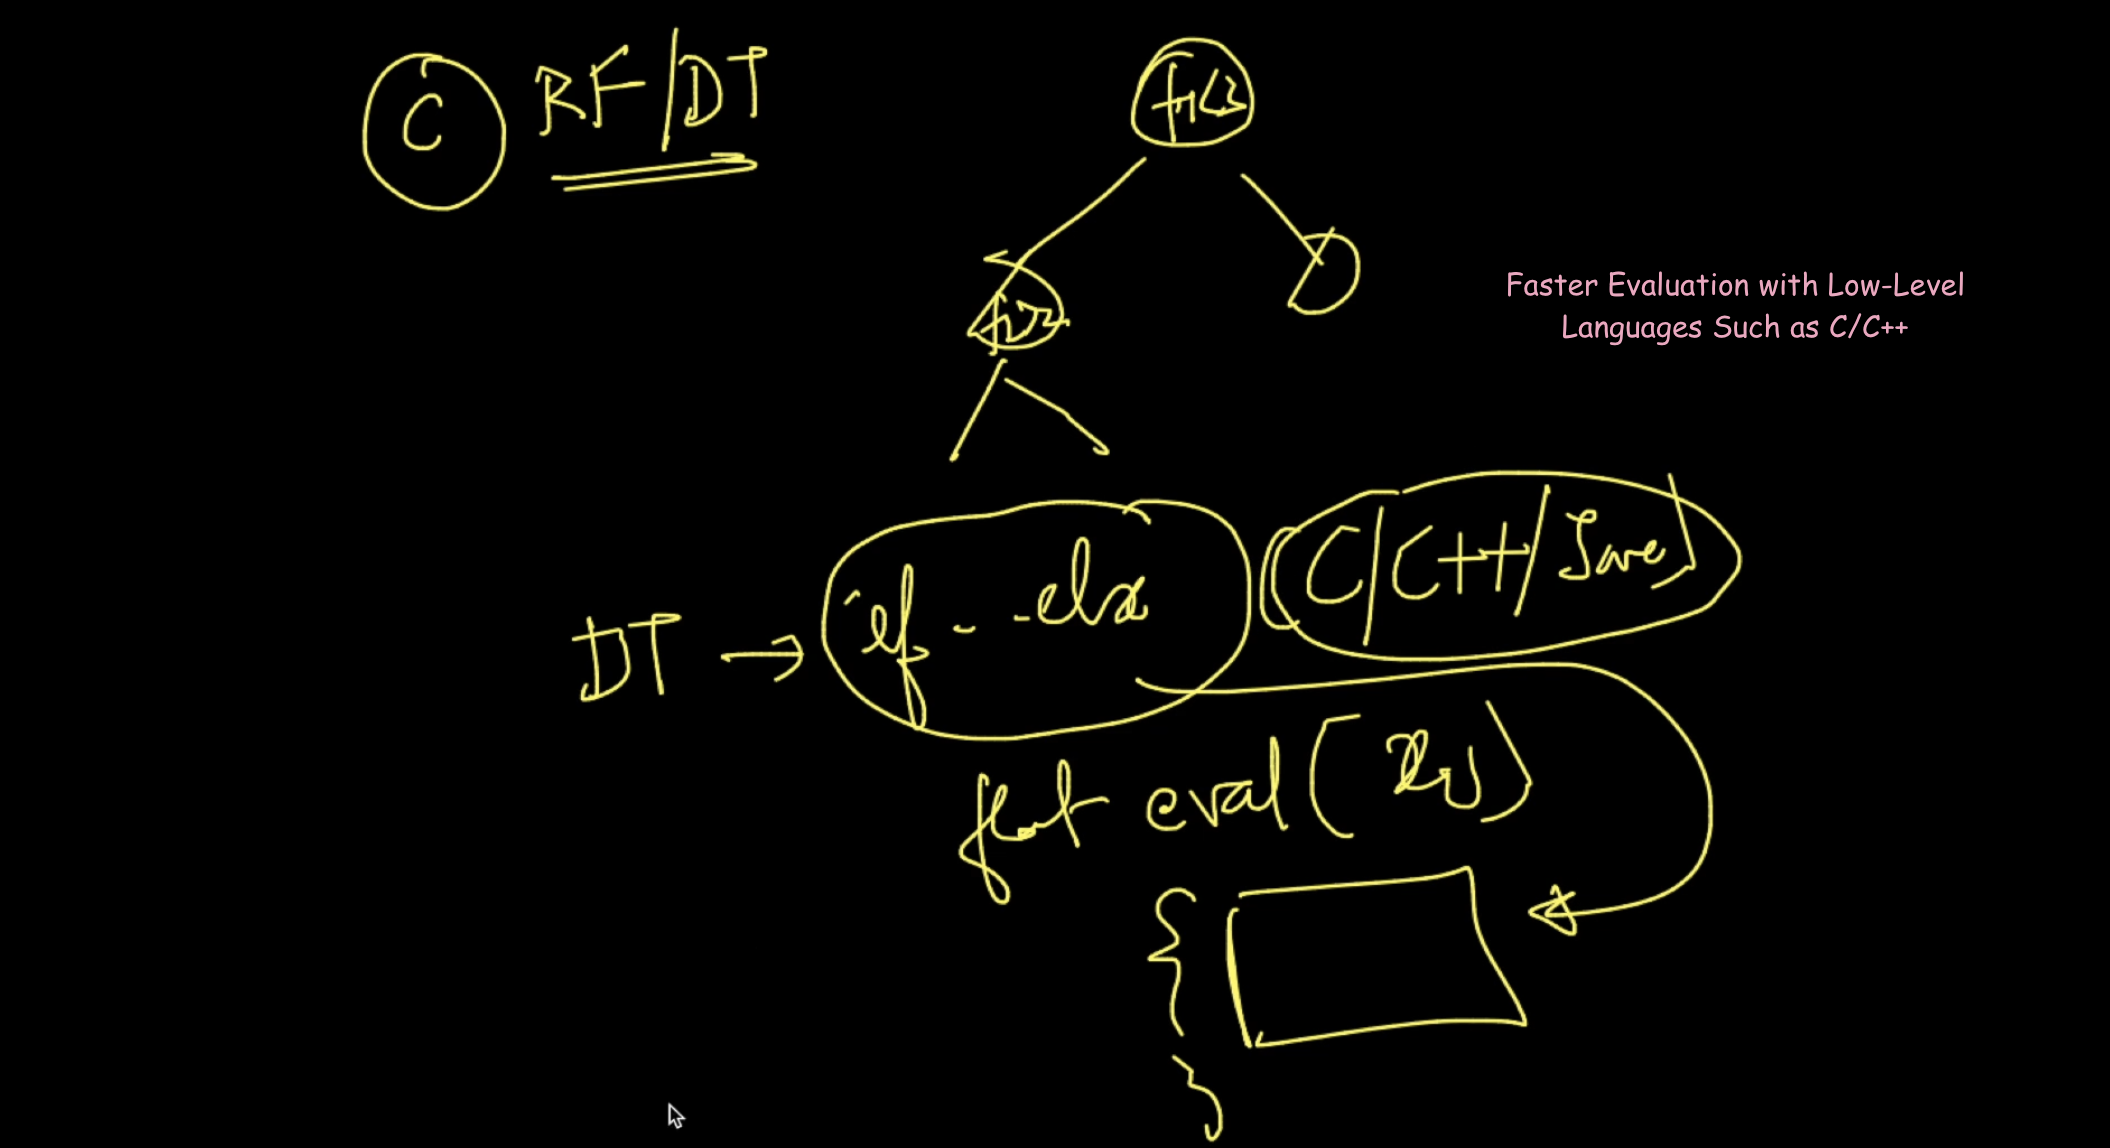 C RF/DT
f1<3
Faster Evaluation with Low-Level
Languages Such as C/C++
f2>2
DT → if - - else (C/C++/Java)
float eval(xq)
{
}